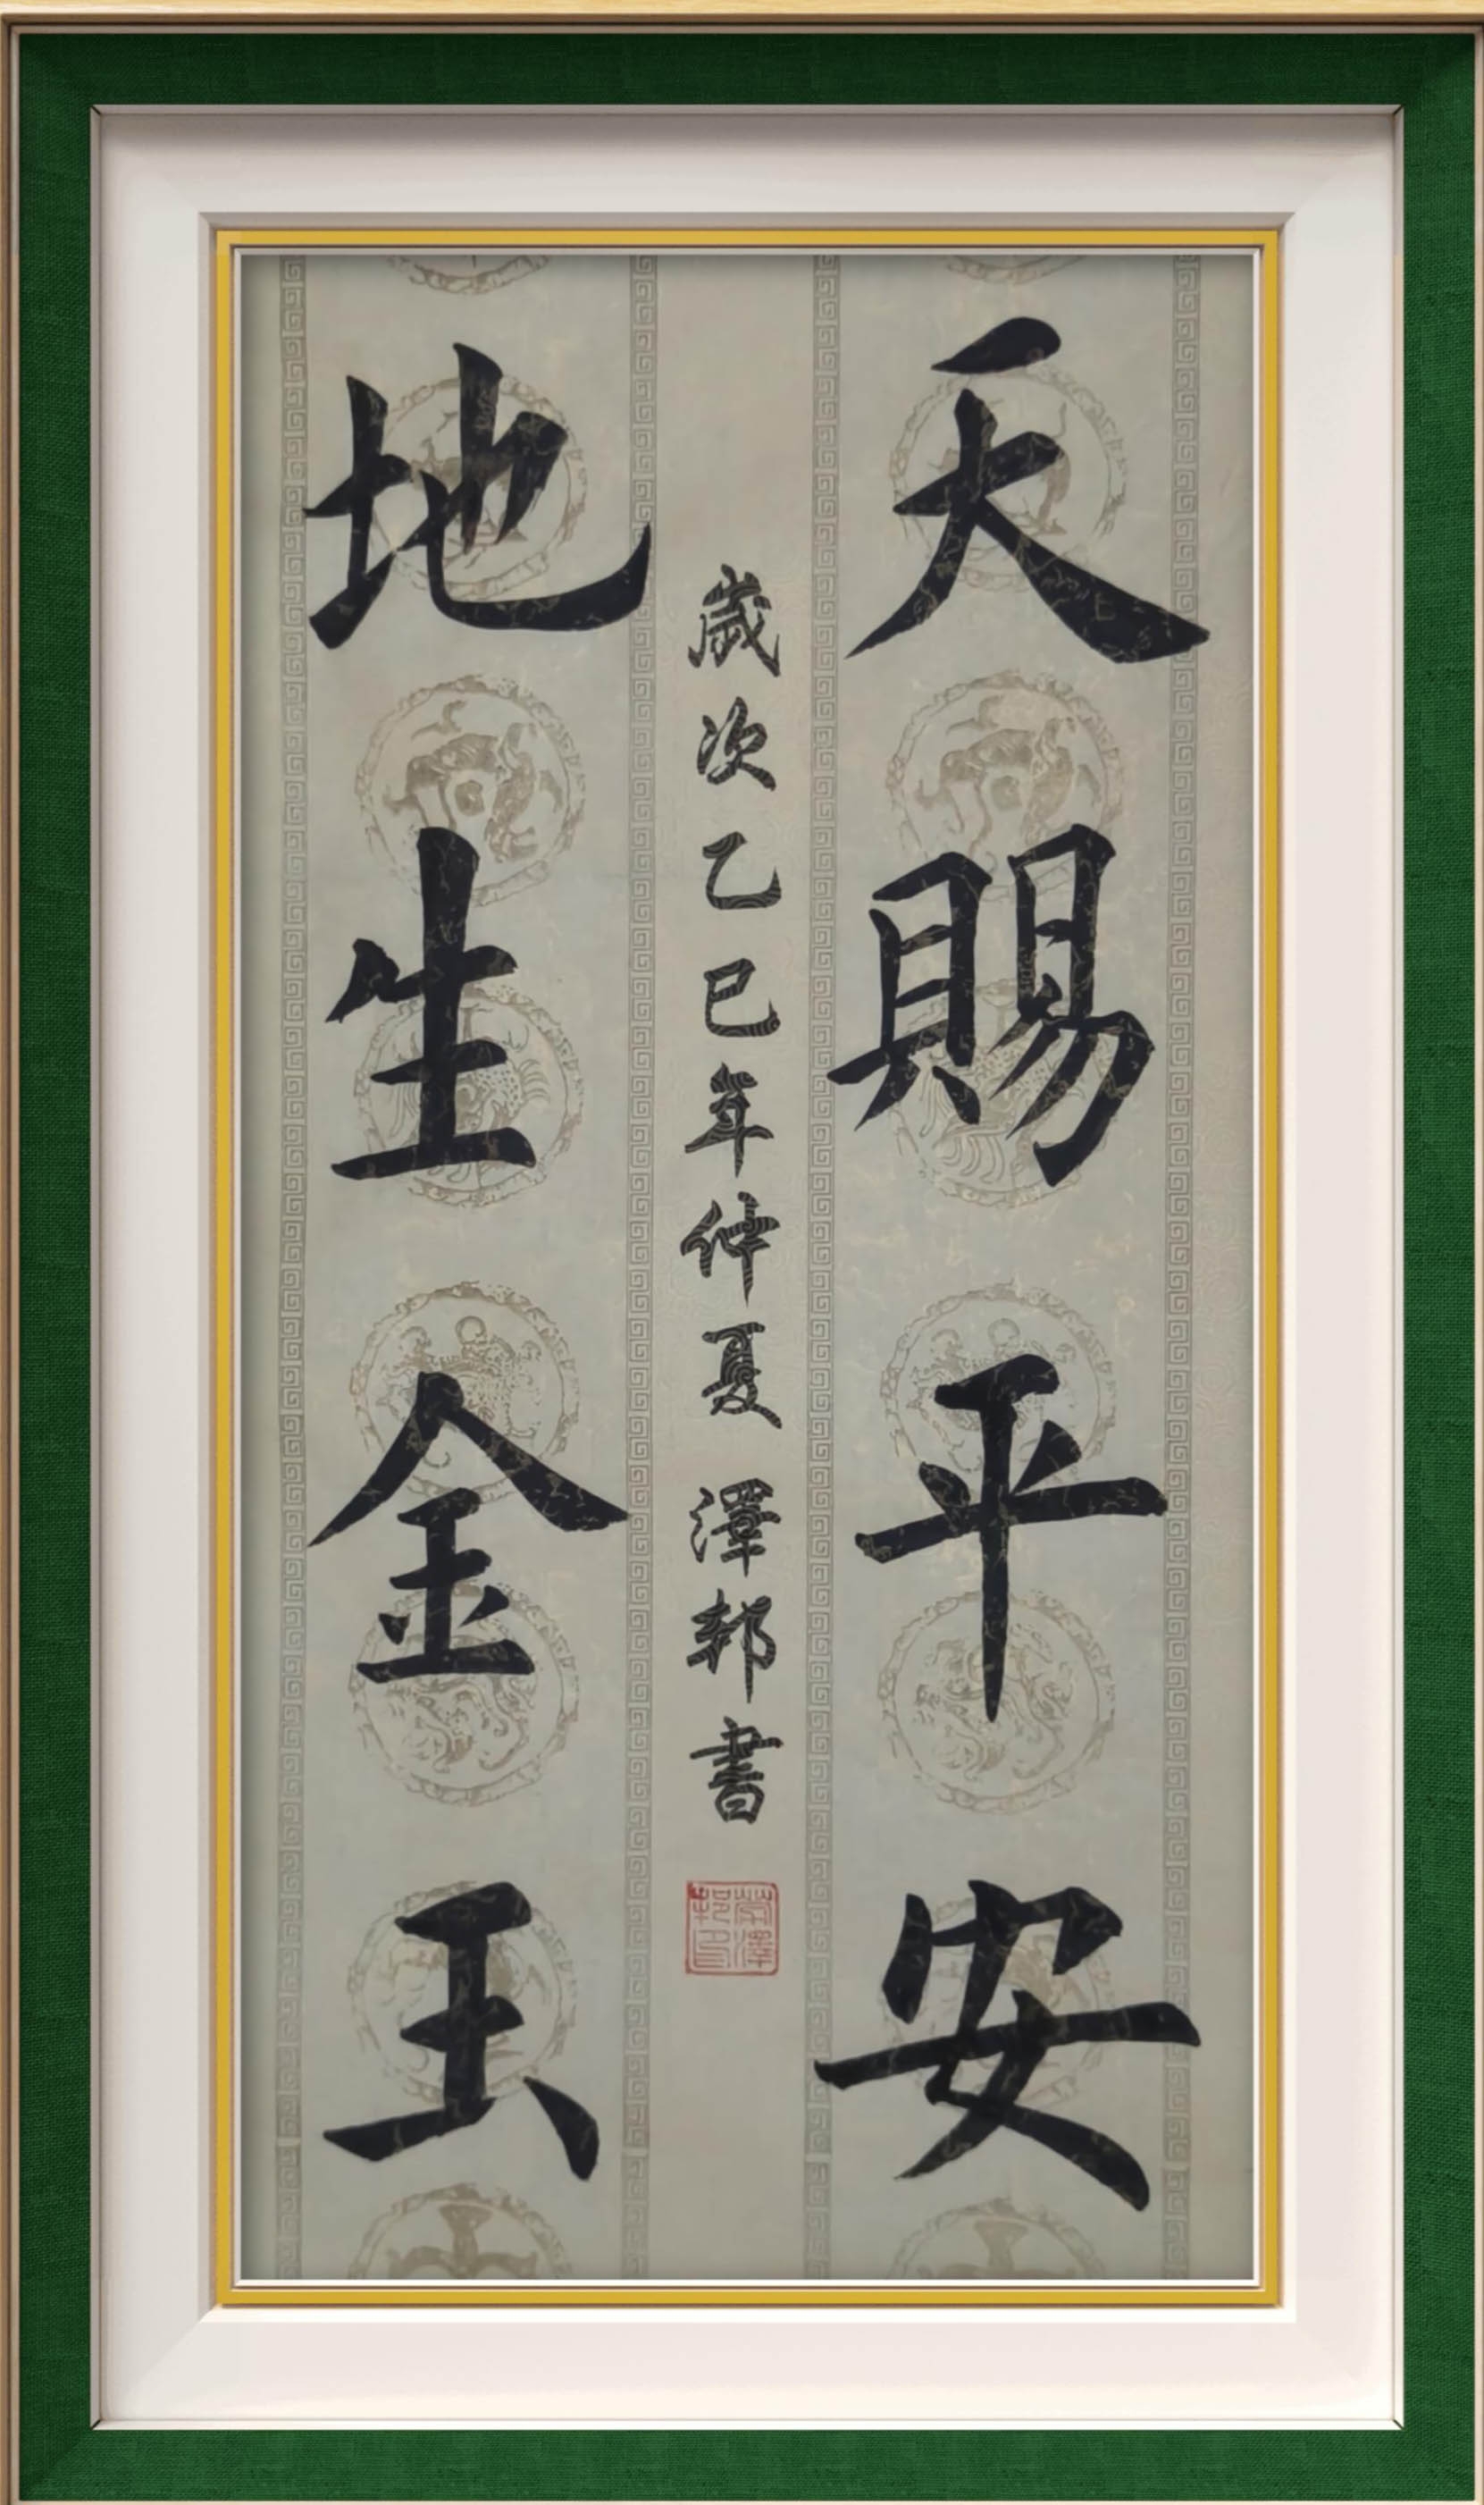 天賜平安
歲次乙巳年仲夏 澤邦書
地生金玉